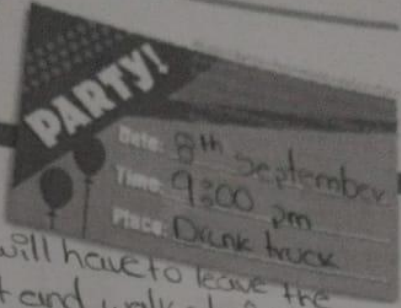 PARTY!
Date: 8th September
Time: 9:00 pm
Place: Drunk truck
will have to leave the
and walk